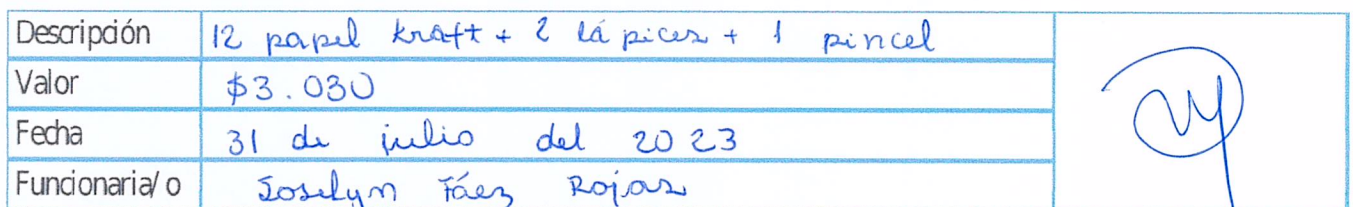 Descripción 12 papel kraft + 2 lápices + 1 pincel
Valor $3.030
Fecha 31 de julio del 2023
Funcionaria/o Joselyn Fáez Rojas